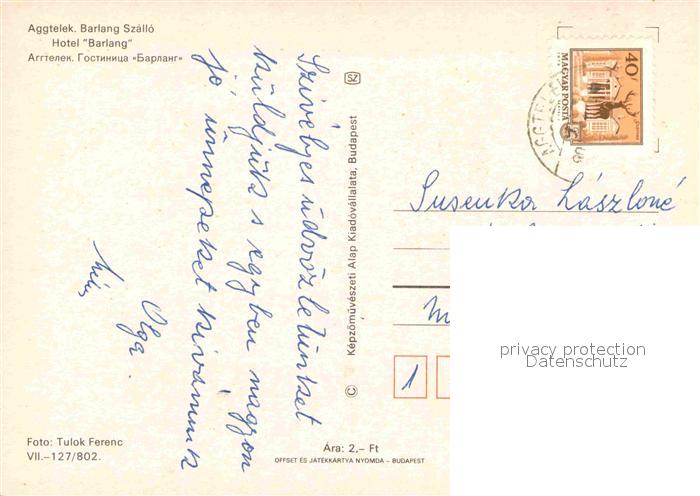 Aggtelek. Barlang Szálló
Hotel "Barlang"
Аггтелек. Гостиница «Барланг»
Szívélyes üdvözletünket
küldjük s egyben nagyon
jó ünnepeket kívánunk
Olga
Foto: Tulok Ferenc
VII.–127/802.
© Képzőművészeti Alap Kiadóvállalata, Budapest
SZ
Ára: 2.– Ft
OFFSET ÉS JÁTÉKKÁRTYA NYOMDA – BUDAPEST
40 f
MAGYAR POSTA
AGGTEL
Susenka Lászlóné
1
privacy protection
Datenschutz